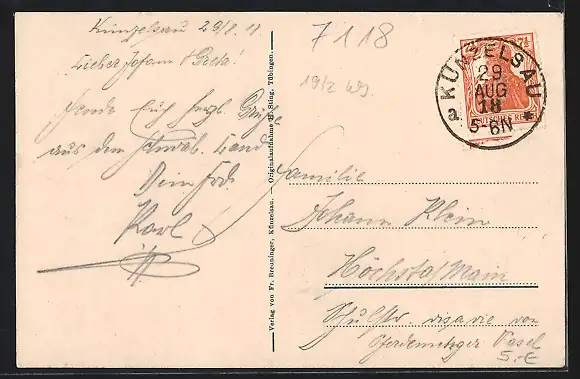 Künzelsau 29/8.18
Lieber Johann & Greta!
Sende Euch herzl. Grüße
aus dem schwäb. Land
Dein Frd.
Karl
Verlag von Fr. Breuninger, Künzelsau. — Originalaufnahme H. Sting, Tübingen.
7118
19/2
7½
DEUTSCHES REICH
KÜNZELSAU
29
AUG
18
5-6N
a
Familie
Johann Klein
Höchst a/Main
Schulstr. visavie von
Pferdemetzger
5.-€